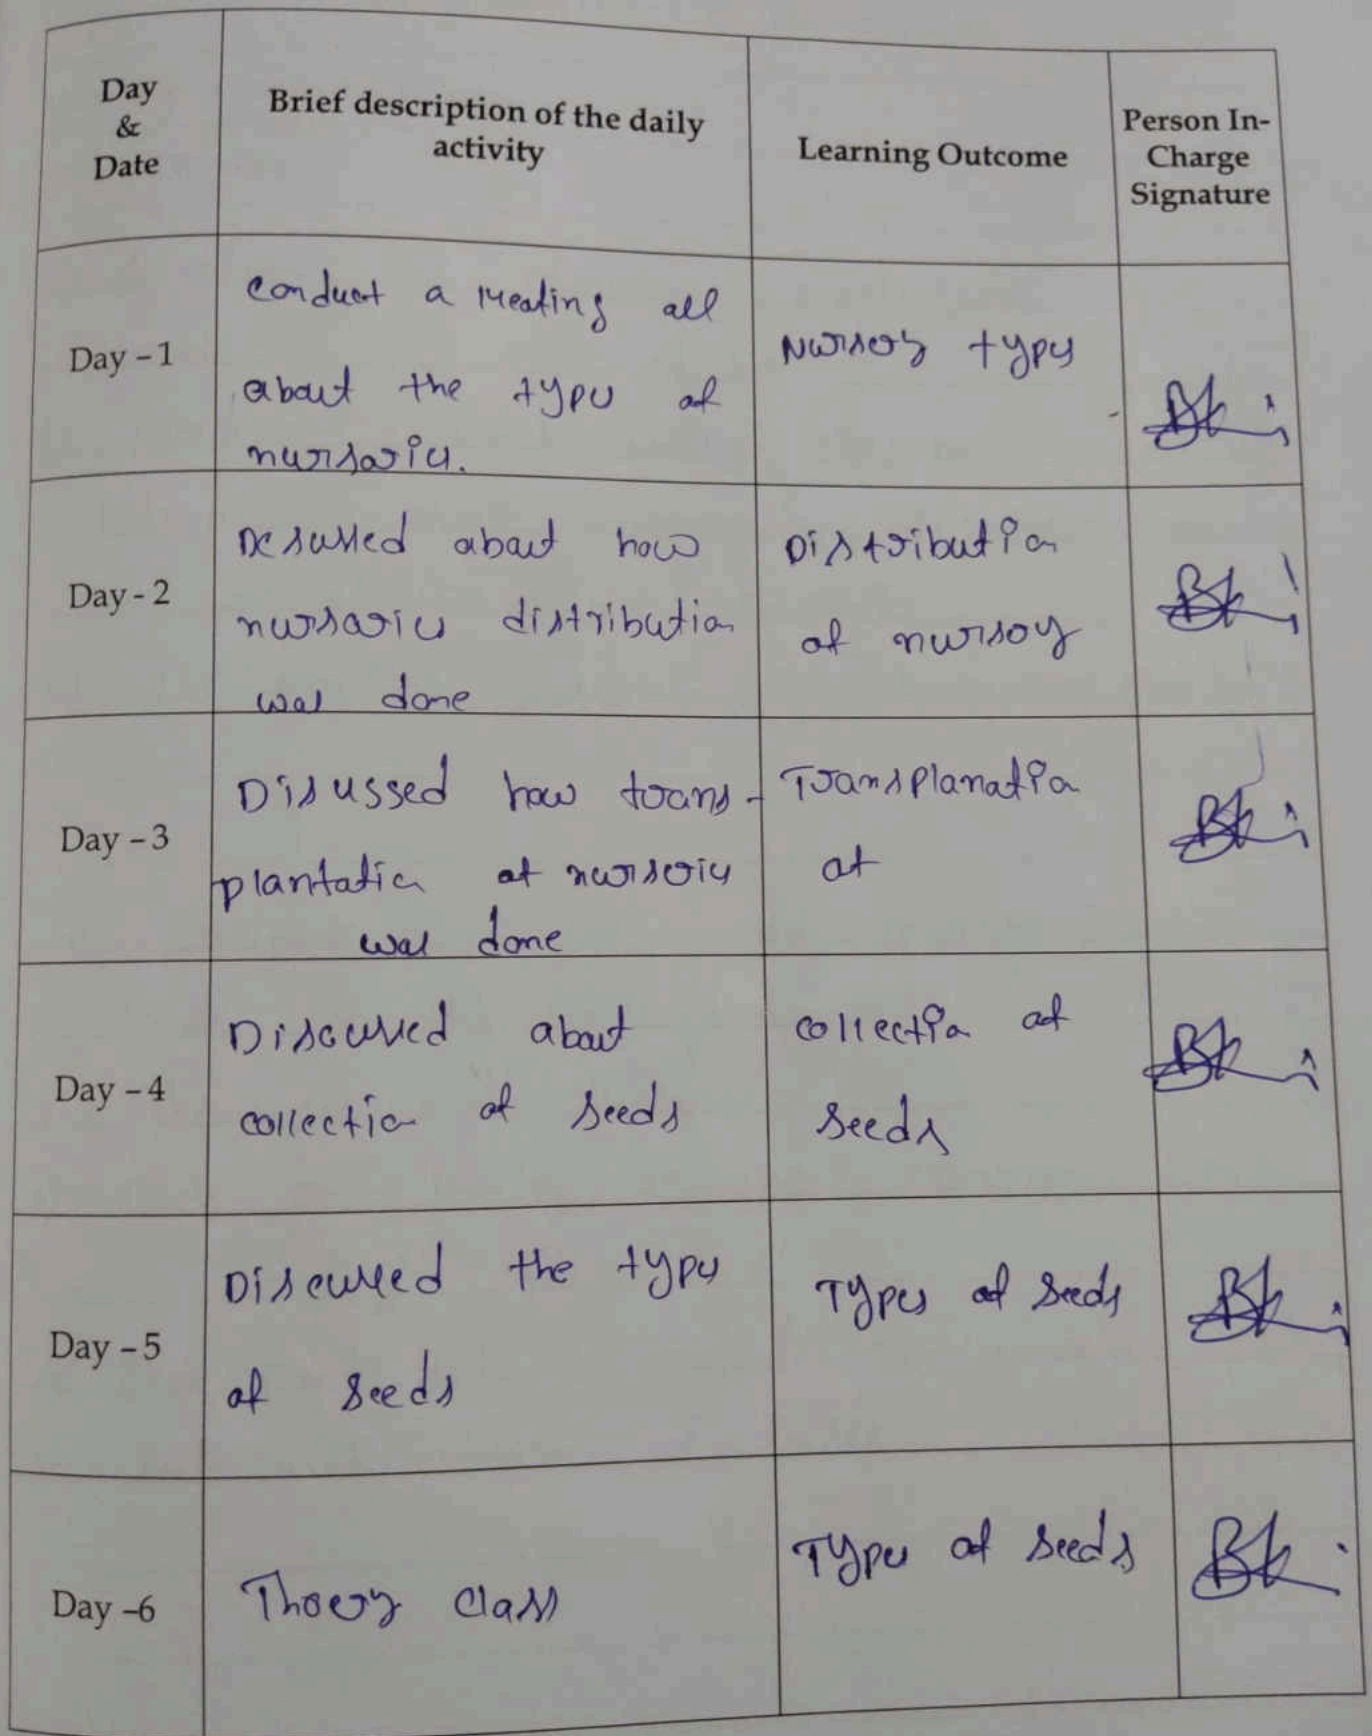 Day
&
Date
Brief description of the daily
activity
Learning Outcome
Person In-
Charge
Signature
Day - 1
conduct a Meating all
about the types of
nursaries.
Nursery types
Day - 2
about how
nursaries distribution
was done
Distribution
of nursery
Day - 3
Disussed how trans-
plantation of nurseries
was done
Transplanation
of
Day - 4
Discussed about
collection of seeds
collection of
seeds
Day - 5
Discussed the types
of seeds
Types of seeds
Day -6
Thoery class
Types of seeds